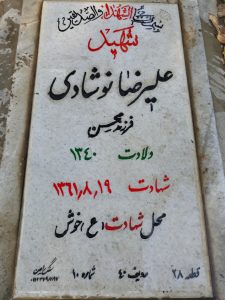 شهید
علیرضا نوشادی
فرزند محسن
ولادت ۱۳۴۰
شهادت ۱۳۶۱٫۸٫۱۹
محل شهادت: ع خوش
قطعه ۲۸ ردیف ۴۰ شماره ۱۰